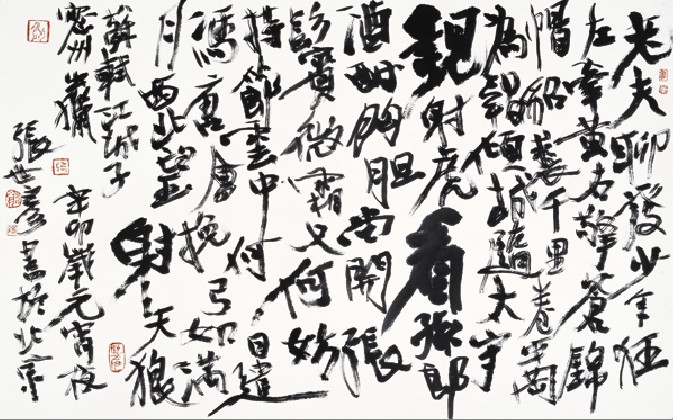 老夫聊發少年狂
左牽黄右擎蒼錦
帽貂裘千里卷岡
為報傾城隨太守
親射虎看孫郎
酒酣胸胆尚開張
鬢微霜又何妨
持節雲中何日遣
馮唐會挽弓如滿
月西北望射天狼
蘇軾江城子
密州出獵 辛卯歲元宵夜
張世彦書於北京